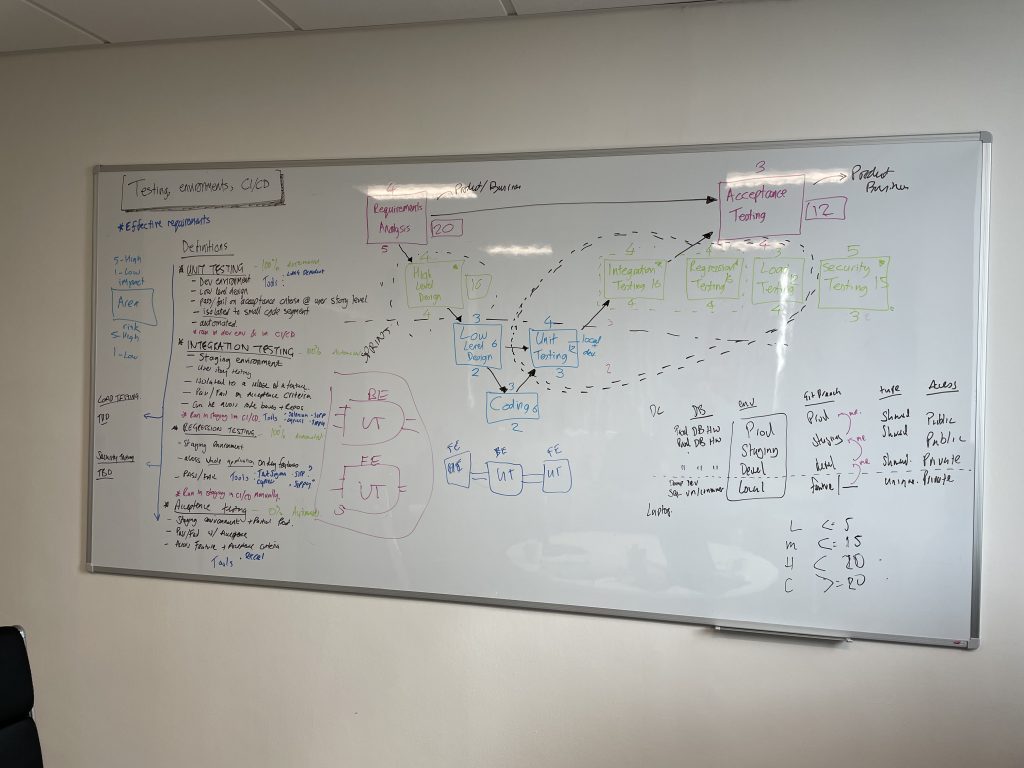 Testing, environments, CI/CD
* Effective requirements
Definitions
5-High
1-Low
impact
Area
risk
5-High
1-Low
* UNIT TESTING - 100% Automated
- Dev environment
Tools:
- Low level design
- pass/fail on acceptance criteria @ user story level
- isolated to small code segment
- automated.
* run in dev env & in CI/CD
* INTEGRATION TESTING - 100% Automated
- Staging environment
- User story testing
- Pass/Fail on Acceptance criterion
* Run in staging in CI/CD. Tools
* REGRESSION TESTING - 100% Automated
- Staging environment
- across whole application on key features
- Pass/Fail Tools:
* Run in staging in CI/CD manually.
* Acceptance testing - 0% Automated
- Staging environment
- Pass/Fail
Feature + Acceptance criteria
Tools
- Excel
LOAD TESTING
TBD
Security Testing
TBD
4
Requirements
Analysis
20
5
Product/Business
4
High
Level
Design
16
4
SPRINTS
3
Low
Level
Design
6
2
3
Coding
6
2
4
Unit
Testing
12
3
local
dev
4
Integration
Testing 16
4
4
Regression
Testing 16
4
4
Load
Testing
3
5
Security
Testing 15
3
3
Acceptance
Testing
12
Product
Business
2
BE
UT
FE
UT
FE
BE
UT
FE
UT
DC DB env Git Branch Access
Prod DB HW Prod Prod Shared Public
Prod DB HW Staging Staging Shared Public
" " " Devel Devel Shared Private
Local feature Private
Laptop
L <= 5
M <= 15
H < 20
C >= 20